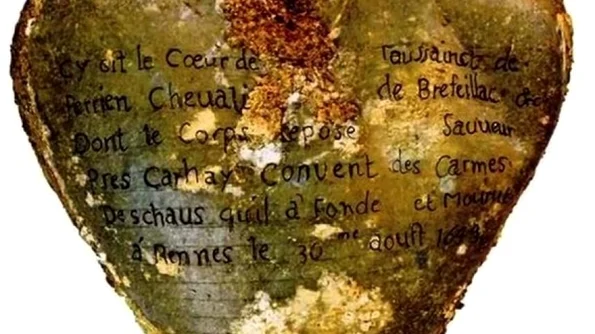 Cy git le Cœur de Toussainct de
Perrien Cheuali de Brefeillac
Dont le Corps Repose Sauueur
Pres Carhay Convent des Carmes
Deschaus quil a Fonde et Mourut
á Rennes le 30 me aouſt